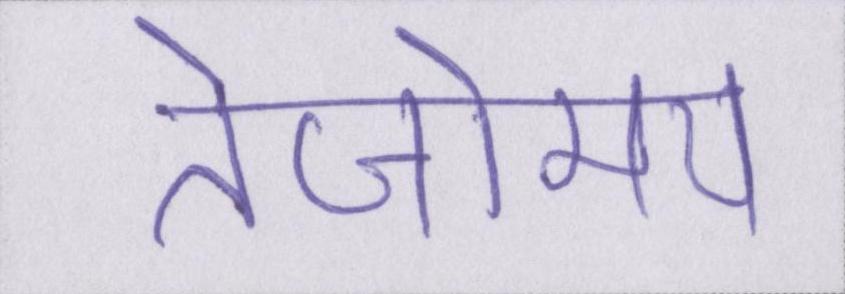 तेजोमय